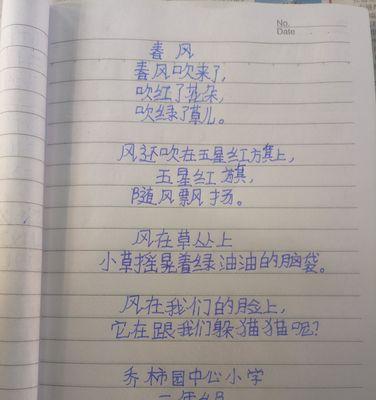 No.
Date
春风
春风吹来了,
吹红了花朵,
吹绿了草儿。
风还吹在五星红旗上,
五星红旗,
随风飘扬。
风在草丛上
小草摇晃着绿油油的脑袋。
风在我们的脸上,
它在跟我们躲猫猫呢?
乔柿园中心小学